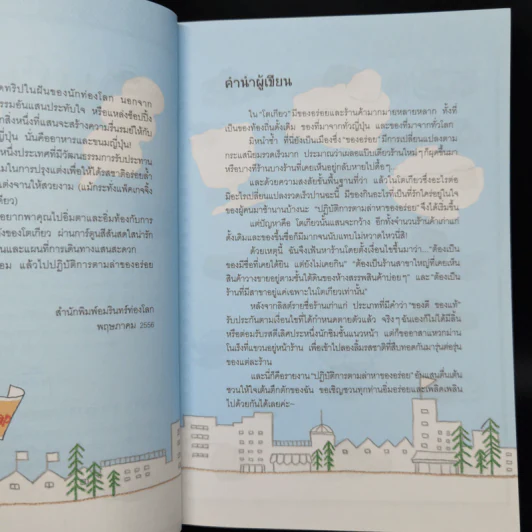 ดทริปในฝันของนักท่องโลก นอกจาก
รรมอันแสนประทับใจ หรือแหล่งช้อปปิ้ง
กสิ่งหนึ่งที่แสนจะสร้างความรื่นรมย์ให้กับ
ญี่ปุ่น นั่นคืออาหารและขนมญี่ปุ่น!
หนึ่งประเทศที่มีวัฒนธรรมการรับประทาน
มในการปรุงแต่งเพื่อให้ได้รสชาติอร่อยล้ำ
แต่งจานให้สวยงาม (แม้กระทั่งแพ็คเกจจิ้ง
ดียว)
อยากพาคุณไปอิ่มตาและอิ่มท้องกับการ
ังของโตเกียว ผ่านการ์ตูนสีสันสดใสน่ารัก
นและแผนที่การเดินทางแสนสะดวก
อม แล้วไปปฏิบัติการตามล่าของอร่อย
สำนักพิมพ์อมรินทร์ท่องโลก
พฤษภาคม 2556
คำนำผู้เขียน
ใน "โตเกียว" มีของอร่อยและร้านค้ามากมายหลายหลาก ทั้งที่
เป็นของท้องถิ่นดั้งเดิม ของที่มาจากทั่วญี่ปุ่น และของที่มาจากทั่วโลก
มิหนำซ้ำ ที่นี่ยังเป็นเมืองซึ่ง "ของอร่อย" มีการเปลี่ยนแปลงตาม
กระแสนิยมรวดเร็วมาก ประมาณว่าเผลอแป๊บเดียวร้านใหม่ๆ ก็ผุดขึ้นมา
หรือบางทีร้านบางร้านที่เคยเห็นอยู่กลับหายไปดื้อๆ...
และด้วยความสงสัยขั้นพื้นฐานที่ว่า แล้วในโตเกียวซึ่งอะไรต่อ
มิอะไรเปลี่ยนแปลงรวดเร็วปานฉะนี้ มีของกินอะไรที่เป็นที่รักใคร่อยู่ในใจ
ของผู้คนมาช้านานบ้างนะ "ปฏิบัติการตามล่าของอร่อย" จึงได้เริ่มขึ้น
แต่ปัญหาคือ โตเกียวนั้นแสนจะกว้าง อีกทั้งจำนวนร้านค้าเก่าแก่
ดั้งเดิมและของขึ้นชื่อก็มีมากจนนับแทบไม่หวาดไหวนี่สิ!
ด้วยเหตุนี้ ฉันจึงเฟ้นหาร้านโดยตั้งเงื่อนไขขึ้นมาว่า..."ต้องเป็น
ของมีชื่อที่เคยได้ยิน แต่ยังไม่เคยกิน" "ต้องเป็นร้านสาขาใหญ่ที่เคยเห็น
สินค้าวางขายอยู่ตามชั้นใต้ดินของห้างสรรพสินค้าบ่อยๆ" และ "ต้องเป็น
ร้านที่มีสาขาอยู่แค่เฉพาะในโตเกียวเท่านั้น"
หลังจากลิสต์รายชื่อร้านเก่าแก่ ประเภทที่มีคำว่า "ของดี ของแท้"
รับประกันตามเงื่อนไขที่ได้กำหนดตายตัวแล้ว จริงๆ ฉันเองก็ไม่ได้มีลิ้น
หรือต่อมรับรสดีเลิศประหนึ่งนักชิมชั้นแนวหน้า แต่ก็ขออาสาแหวกม่าน
โนเร็งที่แขวนอยู่หน้าร้าน เพื่อเข้าไปลองลิ้มรสชาติที่สืบทอดกันมารุ่นต่อรุ่น
ของแต่ละร้าน
และนี่ก็คือรายงาน "ปฏิบัติการตามล่าหาของอร่อย" อันแสนตื่นเต้น
ชวนให้ใจเต้นตึกตักของฉัน ขอเชิญชวนทุกท่านอิ่มอร่อยและเพลิดเพลิน
ไปด้วยกันได้เลยค่ะ~